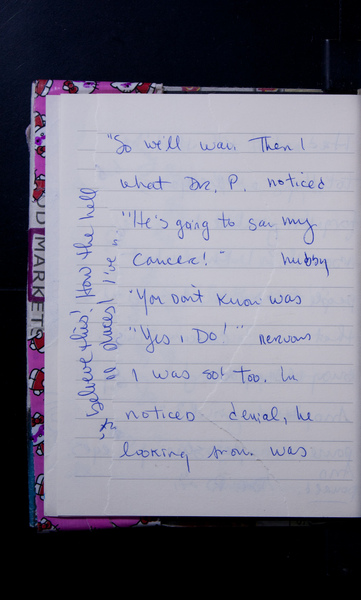 "So we'll wait. Then I
what Dr. P. noticed
"He's going to say my
Cancer!" hubby
"You don't know was
"Yes, I Do!" nervous
I was so! too. In
noticed denial, he
looking from was
believe this! How the hell
places! I've
D MARKETS